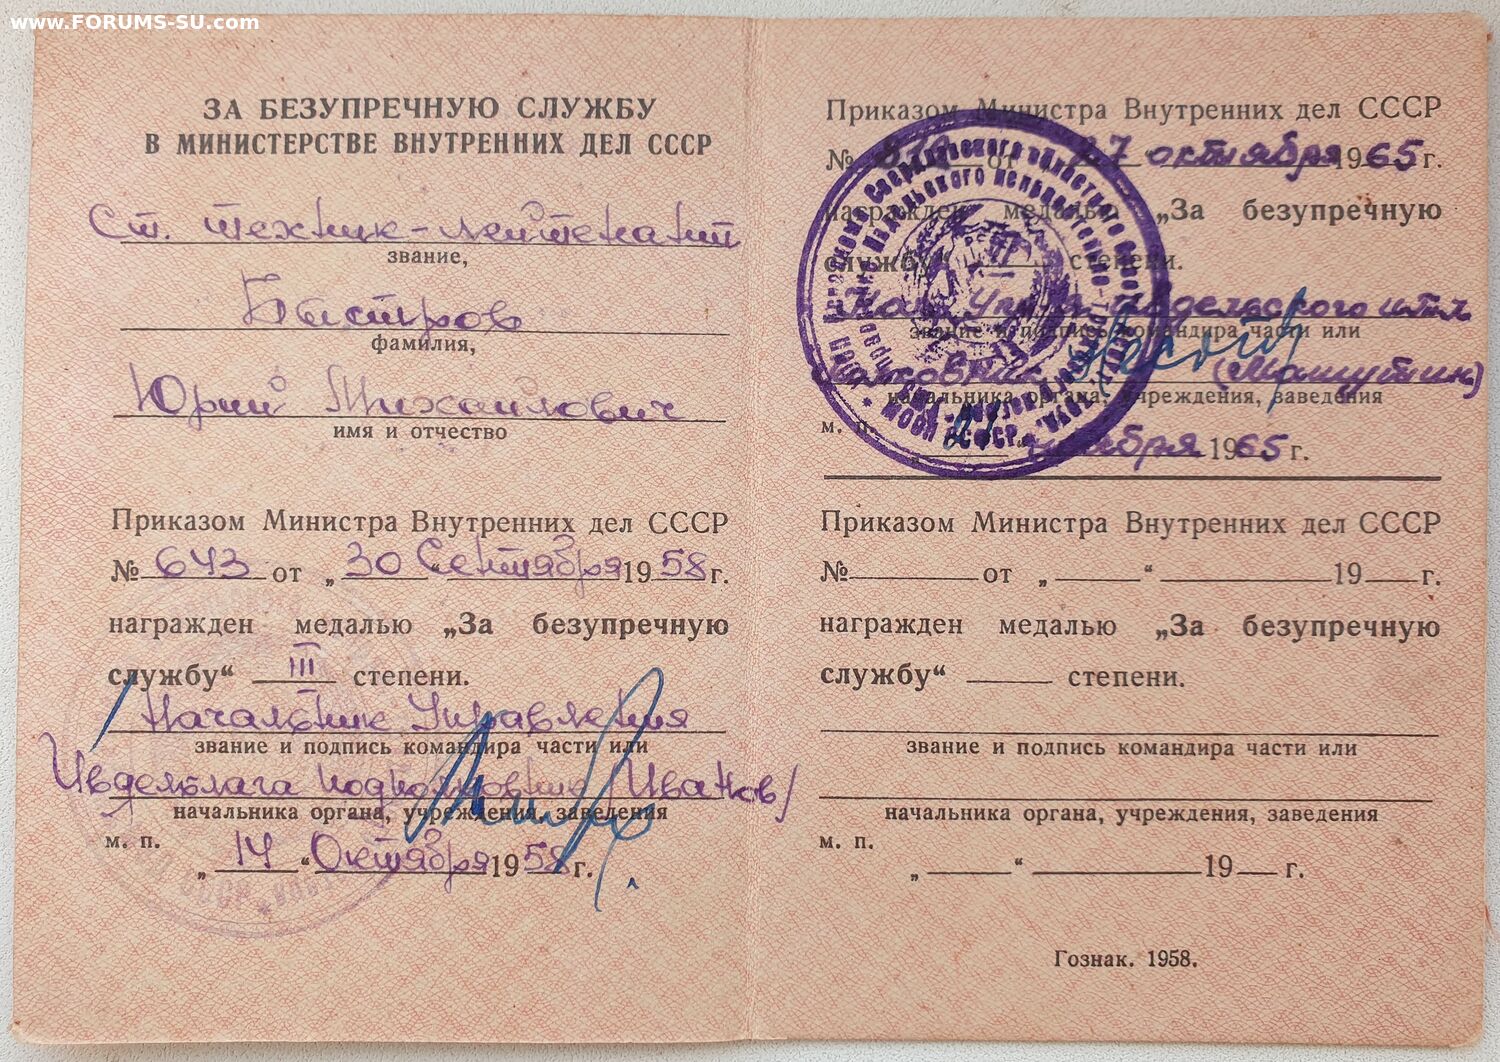 www.FORUMS-SU.com
ЗА БЕЗУПРЕЧНУЮ СЛУЖБУ
В МИНИСТЕРСТВЕ ВНУТРЕННИХ ДЕЛ СССР
Ст. техник-лейтенант
звание,
Быстров
фамилия,
Юрий Михайлович
имя и отчество
Приказом Министра Внутренних дел СССР
№ 643 от „30“ Сентября 1958 г.
награжден медалью „За безупречную
службу“ III степени.
Начальник Управления
звание и подпись командира части или
Ивдельлага подполковник /Иванов/
начальника органа, учреждения, заведения
м. п.
„14“ Октября 1958 г.
Приказом Министра Внутренних дел СССР
№ от 27 октября 1965 г.
награжден медалью „За безупречную
службу“ II степени.
Нач. Ивдельского
звание и подпись командира части или
полковник
начальника органа, учреждения, заведения
м. п.
ноября 1965 г.
Приказом Министра Внутренних дел СССР
№ от „ “ 19 г.
награжден медалью „За безупречную
службу“ степени.
звание и подпись командира части или
начальника органа, учреждения, заведения
м. п.
„ “ 19 г.
Гознак. 1958.